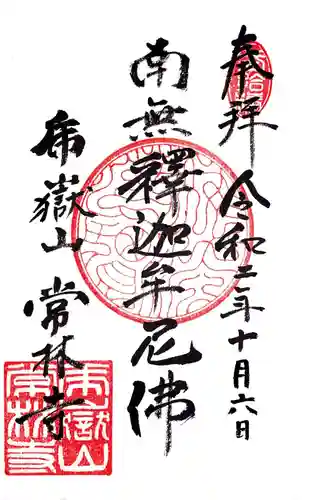 奉拝
令和二年十月六日
南無釋迦牟尼佛
乕嶽山 常林寺
乕嶽山
常林寺